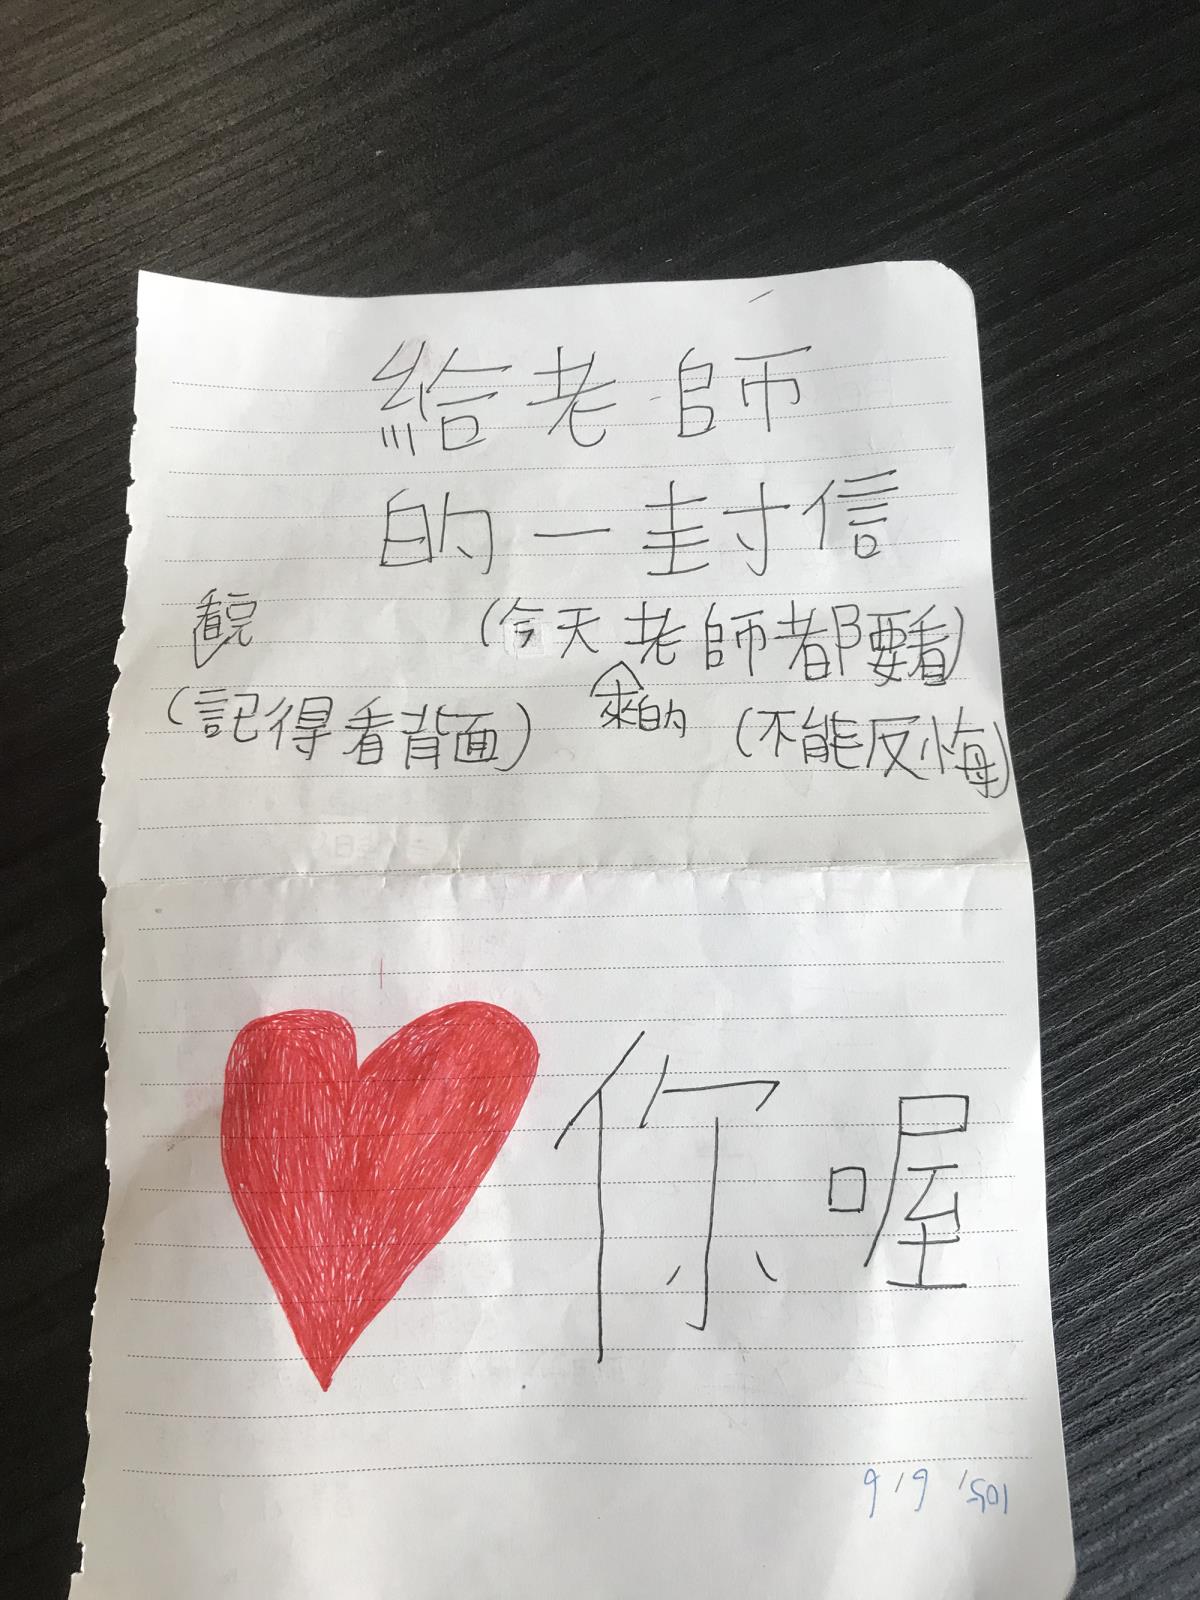 給老師
的一封信
(今天來的老師都要看)
(記得看背面)
(不能反悔)
你喔